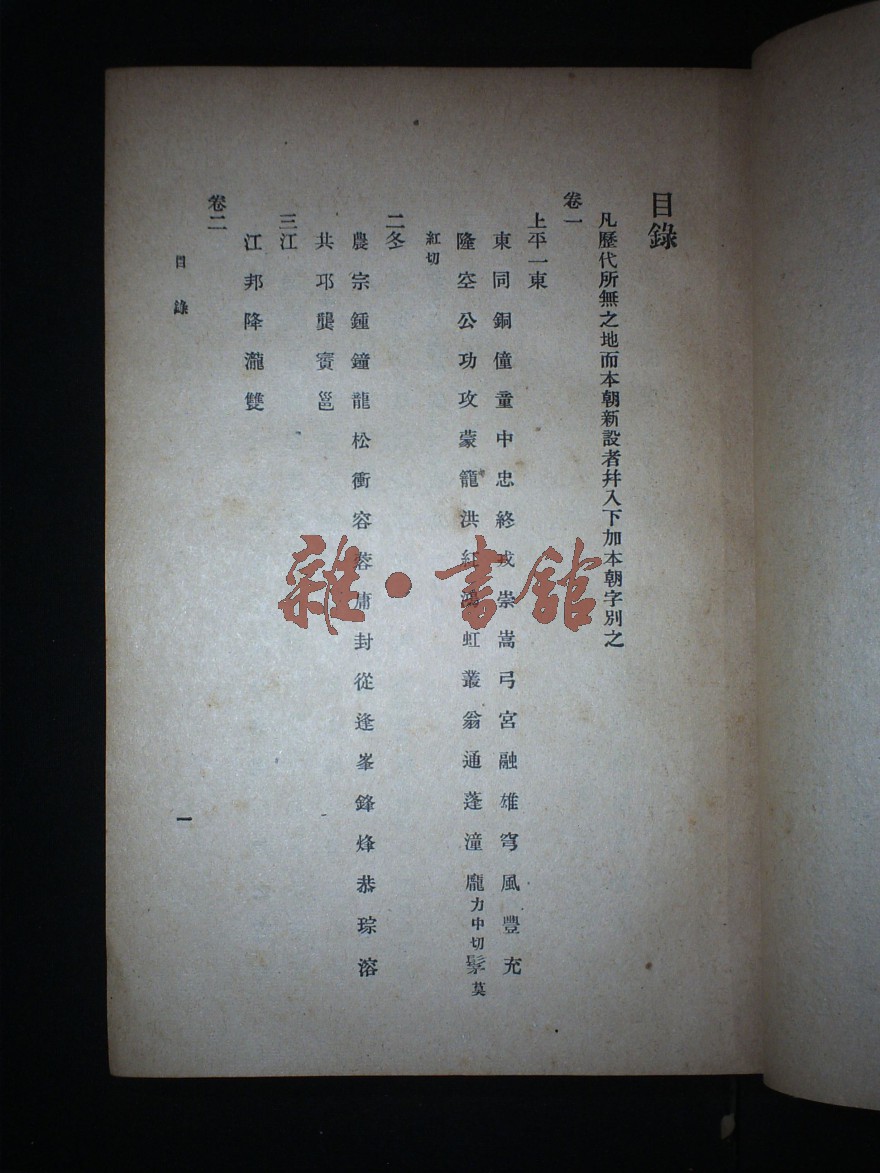 目錄
凡歷代所無之地而本朝新設者幷入下加本朝字別之
卷一
上平一東
東同銅僮童中忠終戎崇嵩弓宮融雄穹風豐充
隆空公功攻蒙籠洪紅鴻虹叢翁通蓬潼龐力中切鬃莫
紅切
二冬
農宗鍾鐘龍松衝容蓉庸封從逢峯鋒烽恭琮溶
共邛龔賨邕
三江
江邦降瀧雙
卷二
目錄
一
雜·書館